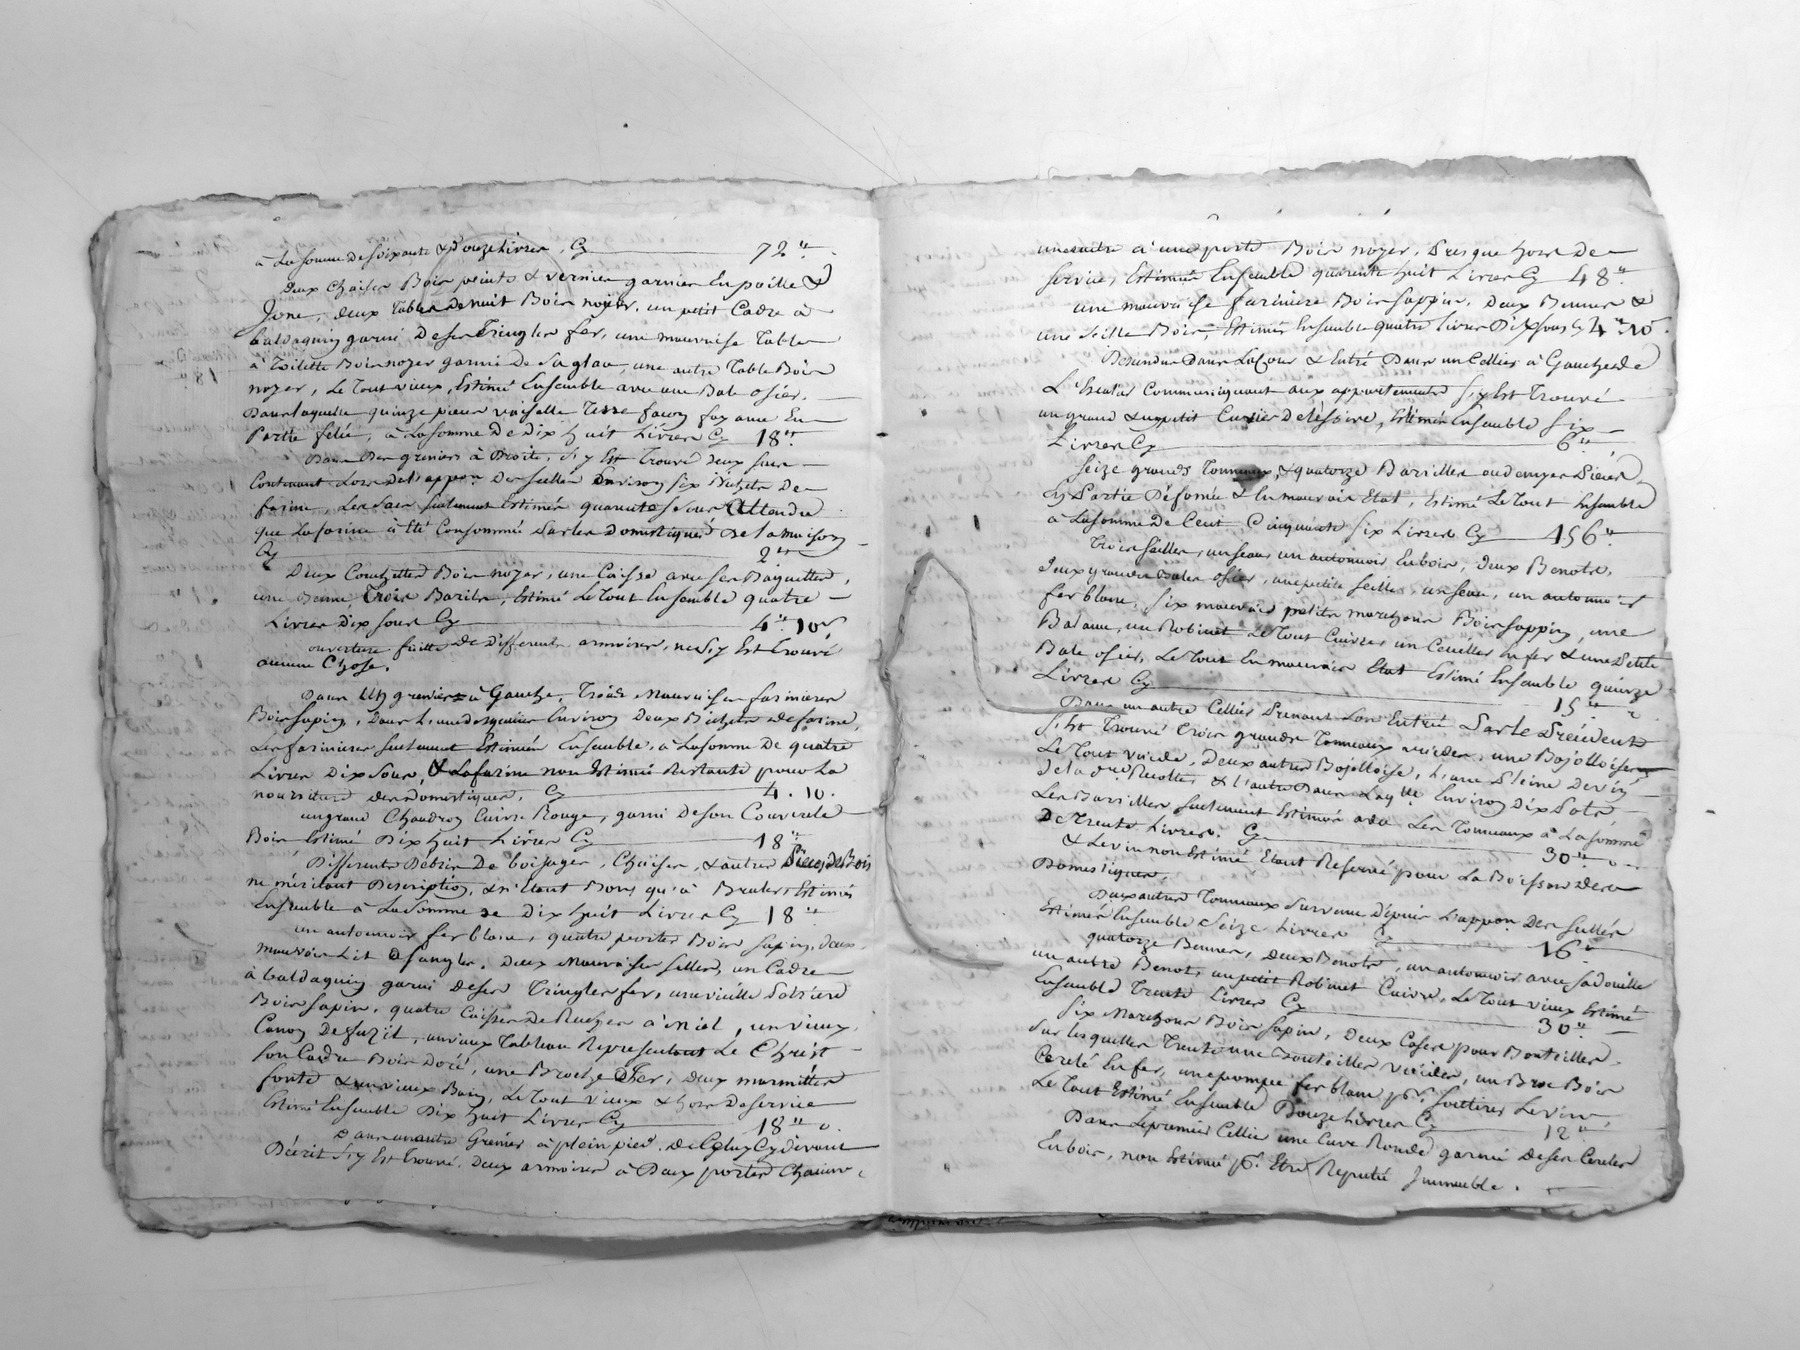 à La somme de soixante & Douze Livres, Cy 72ᵗᵗ
Deux Chaises Bois peints & vernier garnier En paille &
Jone, deux tables de nuit Bois noyer, un petit Cadre à
baldaquin garni De ses Tringles fer, une mauvaise Table
à Toilette Bois noyer garni De sa glace, une autre Table Bois
noyer, Le Tout vieux, Estimé Ensemble avec une Bale osier,
Dans laquelle quinze pieces vaisselle Terre façon fayance En
Partie felée, à La somme De Dix huit Livres Cy 18ᵗᵗ
Dans Des greniers à Droite, S'y Est Trouvé deux sacs
Contenant Lors De L'appon Des scellés Environ six Bichets De
farine, Les sacs seulement Estimés quarante sous Attendu
que La farine à été Consommé Par les Domestiques De la maison
Cy 2ᵗᵗ
Deux Couchettes Bois noyer, une Caisse avec ses Baguettes,
une Benne, Trois Barils, Estimé Le Tout Ensemble quatre
Livres Dix sous Cy 4ᵗᵗ 10ˢ
ouverture faitte De Differents armoires, ne S'y Est Trouvé
aucune Chose.
Dans Un grenier à Gauche, Trois Mauvaises farinieres
Bois sapin, Dans L'une desquelles Environ Deux Bichets de farine,
Les farinieres seulement Estimées Ensemble, à La somme De quatre
Livres Dix Sous, & La farine non Estimé Restante pour La
nourriture des Domestiques, Cy 4. 10.
un grand Chaudron Cuivre Rouge, garni De son Couvercle
Bois Estimé Dix huit Livres Cy 18ᵗᵗ
Differents Debris De boisages, Chaises, & autres Pieces de Bois
ne méritant Description, & n'Etant Bons qu'à Bruler, Estimés
Ensemble à La Somme De Dix huit Livres Cy 18ᵗᵗ
un antonnoir fer blanc, quatre portes Bois sapin, deux
mauvais Lit De sangles, Deux Mauvaises selles, un Cadre
à baldaquin garni De ses Tringles fer, une vieille
Bois sapin, quatre Caisses De Ruches à miel, un vieux
Canon De fuzil, un vieux Tableau Representant Le Christ
son Cadre Bois Doré, une Broche De fer, Deux marmittes
fonte & un vieux Le Tout vieux & hors De service
Estimé Ensemble Dix huit Livres Cy 18ᵗᵗ
Dans un autre Grenier à plein pied De Celuy Cy devant
Décrit S'y Est Trouvé, Deux armoires à Deux portes Chacune
une autre à une porte Bois noyer, Presque hors De
service, Estimés Ensemble quarante huit Livres Cy 48ᵗᵗ
une mauvaise fariniere Bois sappin, Deux Bennes &
une seille Bois, Estimés Ensemble quatre Livres Dix sous Cy 4ᵗᵗ 10
Descendu Dans La Cour & Entré Dans un Cellier à Gauche de
L'Escalier Communiquant aux appartements S'y Est Trouvé
un grand & un petit Cuvier De lessive, Estimés Ensemble six
Livres Cy 6ᵗᵗ
Seize grands Tonneaux, & quatorze Barilles ou demyes Pieces
En Partie Défoncée & En mauvais Etat, Estimé Le Tout Ensemble
à La somme De Cent Cinquante Six Livres Cy 156ᵗᵗ
Trois seilles, un seau, un antonnoir En bois, Deux Benots,
Deux grandes Bales osier, une petite seille, un seau, un antonnoir
fer blanc, six mauvais petits marchons Bois sappin, une
Balance, un Robinet Le Tout Cuivre, un Cueiller En fer & une Petite
Bale osier, Le Tout En mauvais Etat Estimé Ensemble quinze
Livres Cy 15ᵗᵗ
Dans un autre Cellier Prenant Son Entrée Par le Précédent
S'Est Trouvé Trois grands Tonneaux vuides, une Bojolloise
Le Tout vuide, Deux autres Bojolloise, L'une Pleine De vin
de la dre Recolte, & L'autre Dans Laqlle Environ Dix Pots
Les Barilles seulement Estimés avec Les Tonneaux à La somme
De Trente Livres, Cy 30ᵗᵗ
& Le vin non Estimé Etant Reservé pour La Boisson des
Domestiques.
Deux autres Tonneaux survenu Depuis L'appon Des scellés
Estimés Ensemble Seize Livres Cy 16ᵗᵗ
quatorze Bennes, Deux Benots, un antonnoir avec sa Douille
un autre Benot, un petit Robinet Cuivre, Le Tout vieux Estimé
Ensemble Trente Livres Cy 30ᵗᵗ
Six Marchons Bois sapin, Deux Cases pour Bouteilles,
sur lesquelles Trente une Bouteilles vuides, un Broc Bois
Cerclé En fer, une pompe fer blanc pr. soutirer Le vin,
Le Tout Estimé Ensemble Douze Livres Cy 12ᵗᵗ
Dans Le premier Cellier une Cuve Ronde garni De ses Cercles
En bois, non Estimé pr. Etre Reputé Immeuble.